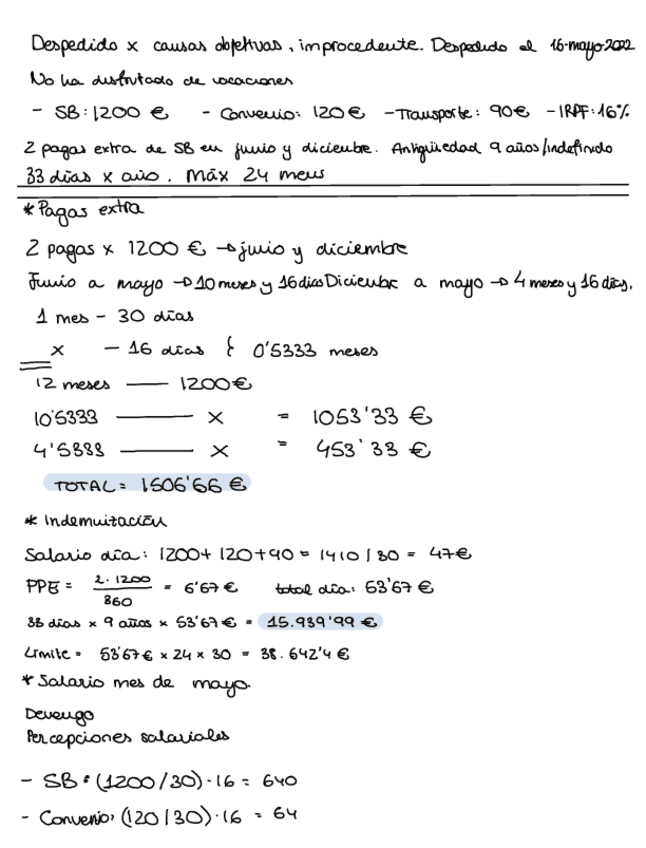 Despedido x causas objetivas, improcedente. Despedido el 16-mayo-2022
No ha disfrutado de vacaciones
- SB: 1200 € - Convenio: 120€ - Transporte: 90€ - IRPF: 16%
2 pagas extra de SB en junio y diciembre. Antigüedad 9 años/indefinido
33 días x año. Máx 24 meses
* Pagas extra
2 pagas x 1200 € → junio y diciembre
Junio a mayo → 10 meses y 16 días Diciembre a mayo → 4 meses y 16 días.
1 mes - 30 días
x - 16 días } 0'5333 meses
12 meses — 1200€
10'5333 — x = 1053'33 €
4'5333 — x = 453'33 €
TOTAL = 1506'66 €
* Indemnización
Salario día: 1200+ 120+90 = 1410 / 30 = 47€
PPE = 2·1200 / 360 = 6'67 € total día: 53'67 €
33 días x 9 años x 53'67 € = 15.939'99 €
Límite = 53'67 € x 24 x 30 = 38.642'4 €
* Salario mes de mayo.
Devengo
Percepciones salariales
- SB: (1200/30)·16 = 640
- Convenio: (120/30)·16 = 64